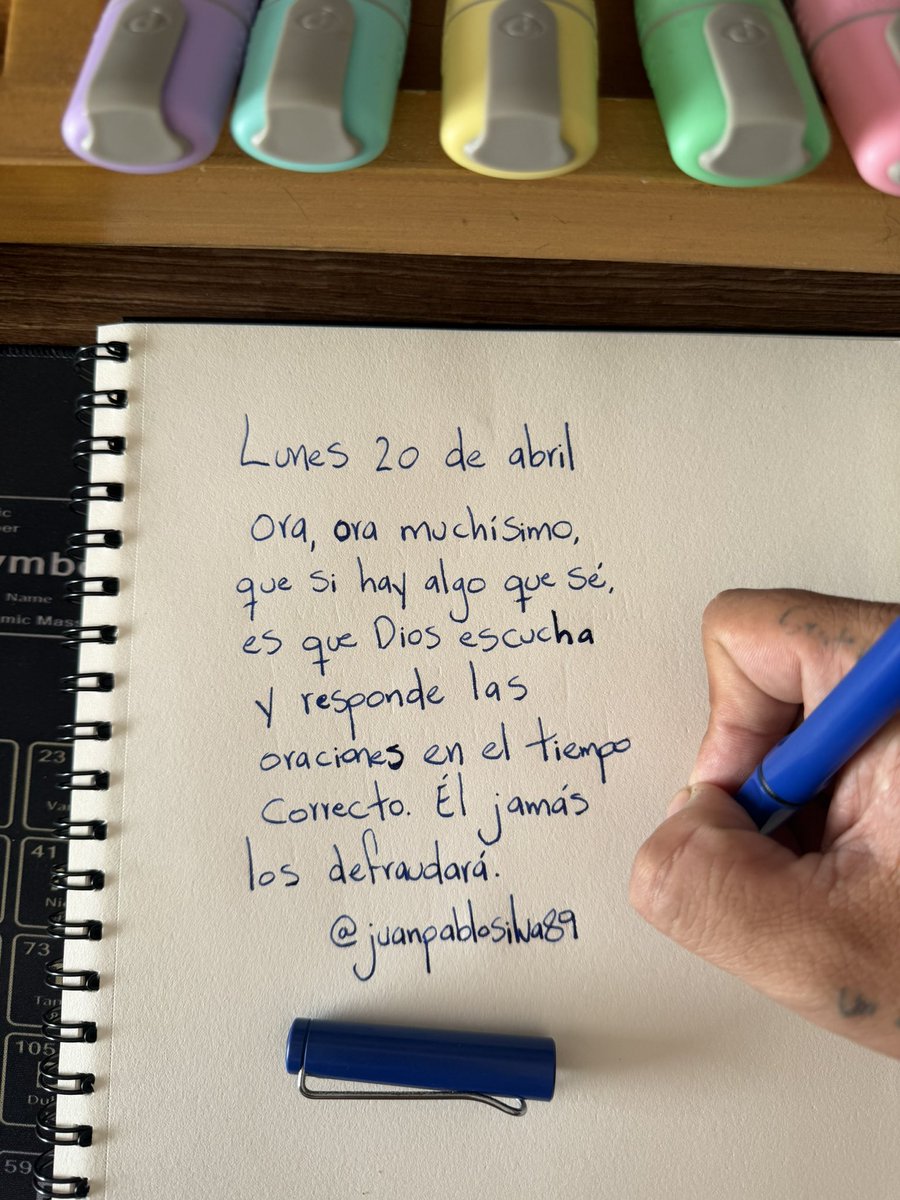 Lunes 20 de abril
Ora, ora muchísimo,
que si hay algo que sé,
es que Dios escucha
y responde las
oraciones en el tiempo
correcto. Él jamás
los defraudará.
@juanpablosilva89
ymb
Name
mic Mass
23
Va
41
Ni
73
Tan
105
Du
59